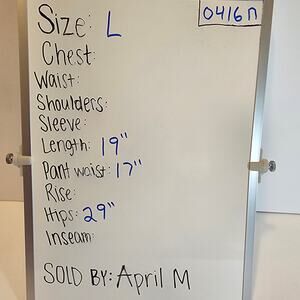 0416n
Size: L
Chest:
Waist:
Shoulders:
Sleeve:
Length: 19"
Pant waist: 17"
Rise:
Hips: 29"
Inseam:
SOLD BY: April M